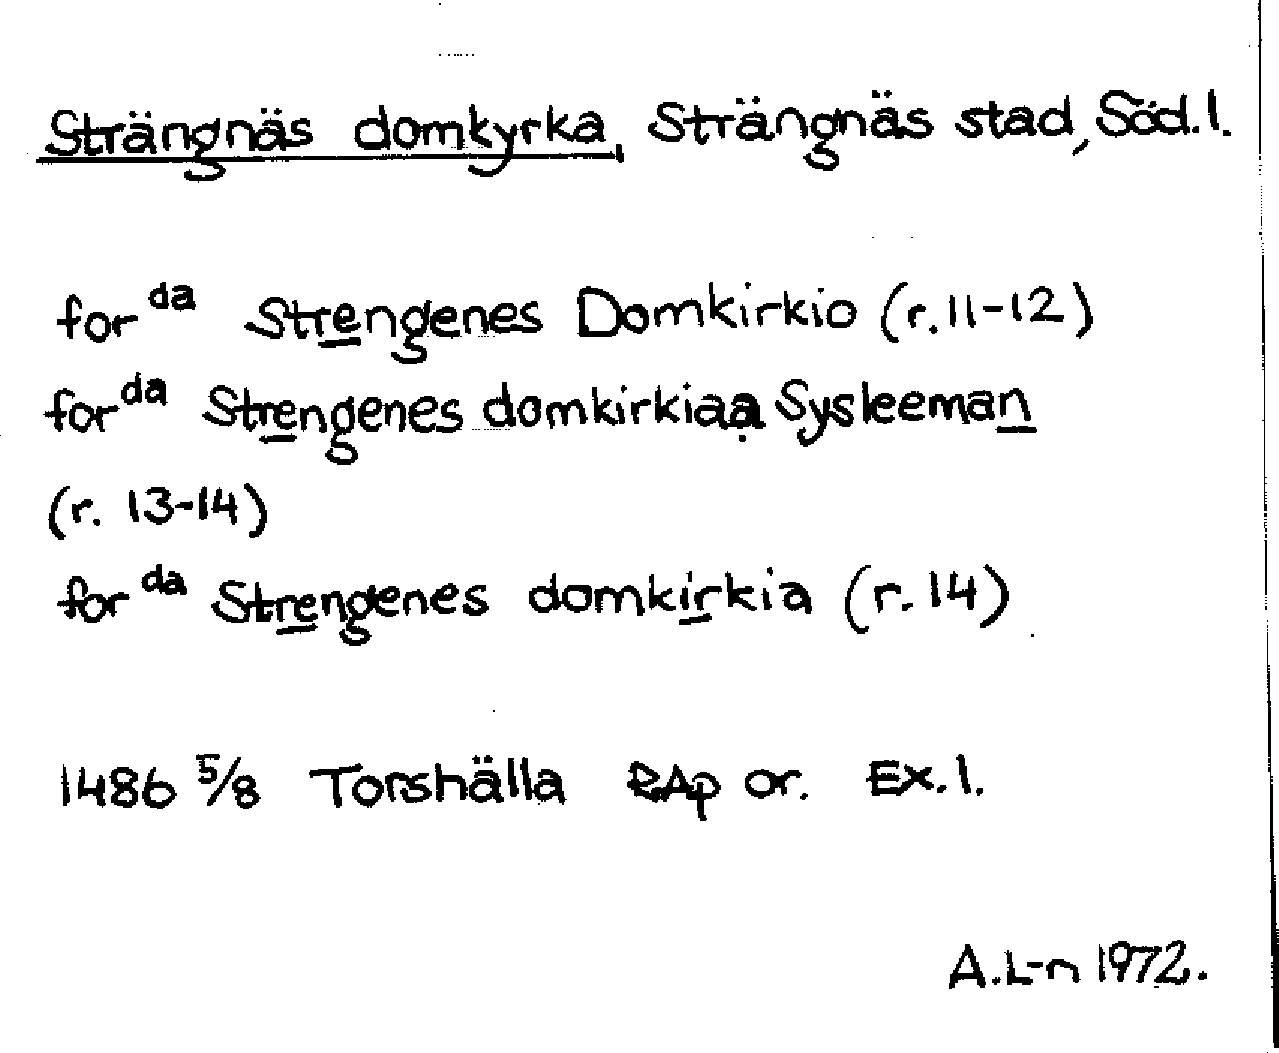 Strängnäs domkyrka, Strängnäs stad, Söd.l.
for da Strengenes Domkirkio (r.11-12)
for da Strengenes domkirkiaa Sysleeman
(r. 13-14)
for da Strengenes domkirkia (r.14)
1486 5/8 Torshälla RAp or. Ex.1.
A.L-n 1972.